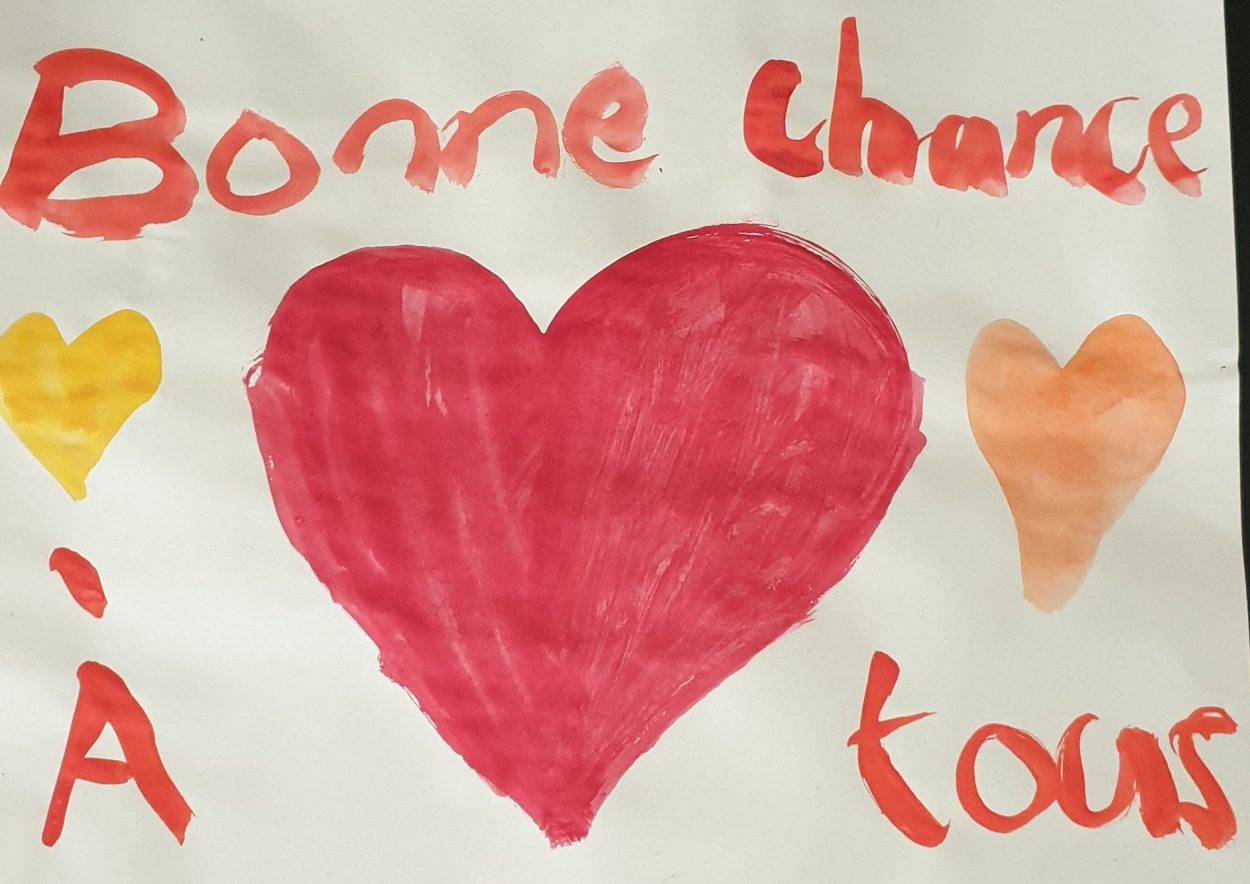 Bonne chance
À tous